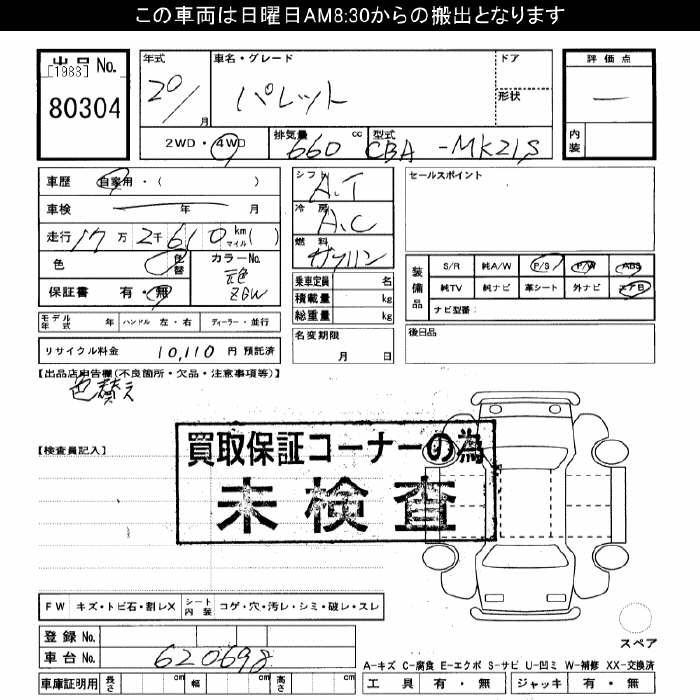 この車両は日曜日AM8:30からの搬出となります
出品 No.
[1983]
80304
年式
20/
月
車名・グレード
パレット
ドア
形状
評価点
—
内装
2WD・4WD
排気量
660 cc
型式
CBA -MK21S
車歴 自家用・( )
車検 年 月
走行 17万 2千 610 km マイル ( )
色 色替
カラーNo.
元色
ZGW
保証書 有・無
シフト
A.T
冷房
A.C
燃料
ガソリン
乗車定員 名
積載量 kg
総重量 kg
セールスポイント
装備品
S/R 純A/W P/S P/W ABS
純TV 純ナビ 革シート 外ナビ エアB
ナビ型番:
モデル年式 年 ハンドル 左・右 ディーラー・並行
名変期限
月 日
後日品
リサイクル料金 10,110 円 預託済
【出品店申告欄(不良箇所・欠品・注意事項等)】
色替え
【検査員記入】
買取保証コーナーの為
未検査
FW キズ・トビ石・割レX シート内装 コゲ・穴・汚レ・シミ・破レ・スレ
スペア
登録 No.
車台 No. 620698
A-キズ C-腐食 E-エクボ S-サビ U-凹ミ W-補修 XX-交換済
車庫証明用 長さ cm 幅 cm 高さ cm
工具 有・無 ジャッキ 有・無